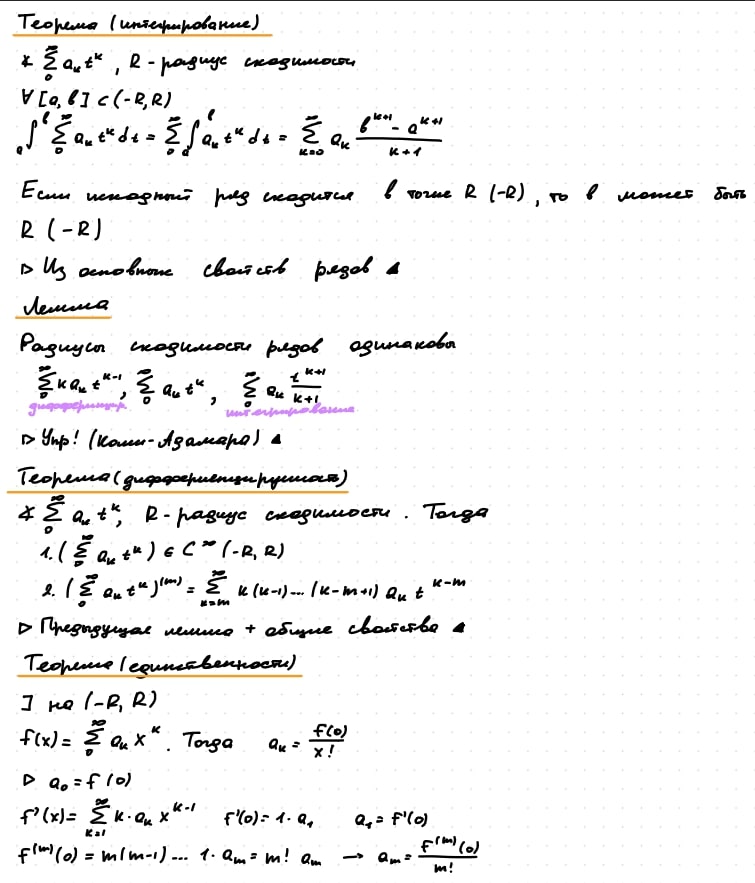 Теорема (интегрирование)
∢ ∑₀^∞ aₖ tᵏ, R - радиус сходимости
∀ [a, b] ⊂ (-R, R)
ₐ∫ᵇ ∑₀^∞ aₖ tᵏ dt = ∑₀^∞ ₐ∫ᵇ aₖ tᵏ dt = ∑_{k=0}^∞ aₖ (b^{k+1} - a^{k+1})/(k+1)
Если исходный ряд сходится в точке R (-R), то b может быть
R (-R)
▷ Из основных свойств рядов ▲
Лемма
Радиусы сходимости рядов одинаковы
∑₀^∞ k aₖ t^{k-1}, ∑₀^∞ aₖ tᵏ, ∑₀^∞ aₖ t^{k+1}/(k+1)
дифференцир. интегрирование
▷ Упр! (Коши-Адамара) ▲
Теорема (дифференцируемость)
∢ ∑₀^∞ aₖ tᵏ, R - радиус сходимости. Тогда
1. (∑₀^∞ aₖ tᵏ) ∈ C^∞ (-R, R)
2. (∑₀^∞ aₖ tᵏ)^{(m)} = ∑_{k=m}^∞ k(k-1)...(k-m+1) aₖ t^{k-m}
▷ Предыдущая лемма + общие свойства ▲
Теорема (единственности)
] на (-R, R)
f(x) = ∑₀^∞ aₖ xᵏ. Тогда aₖ = f(0)/x!
▷ a₀ = f(0)
f'(x) = ∑_{k=1}^∞ k · aₖ x^{k-1} f'(0) = 1 · a₁ a₁ = f'(0)
f^{(m)}(0) = m(m-1)... 1 · aₘ = m! aₘ → aₘ = f^{(m)}(0)/m!